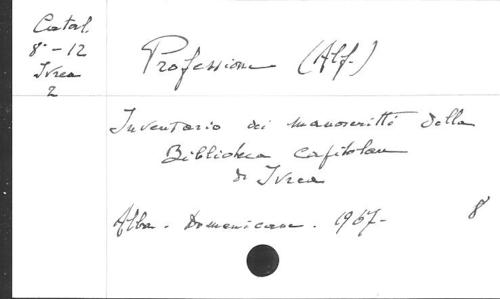 Catal.
8° - 12
Ivrea
2
Professione (Alf.)
Inventario dei manoscritti della
Biblioteca Capitolare
di Ivrea
Alba - Domenicane - 1967 - 8°